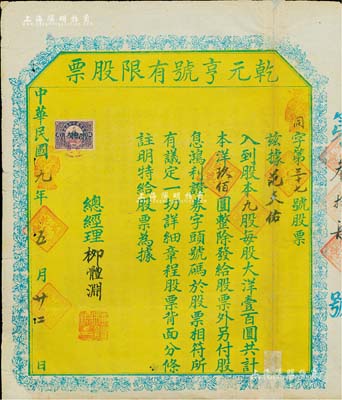 乾元亨號有限股票
同字第三十七號股票
茲據范天佑
入到股本九股每股大洋壹百圓共計
本洋玖佰圓整除發給股票外另付股
息鴻利證券字頭號碼於股票相符所
有議定一切詳細章程股票背面分條
註明特給股票為據
總經理柳體淵
中華民國九年五月廿二日
號